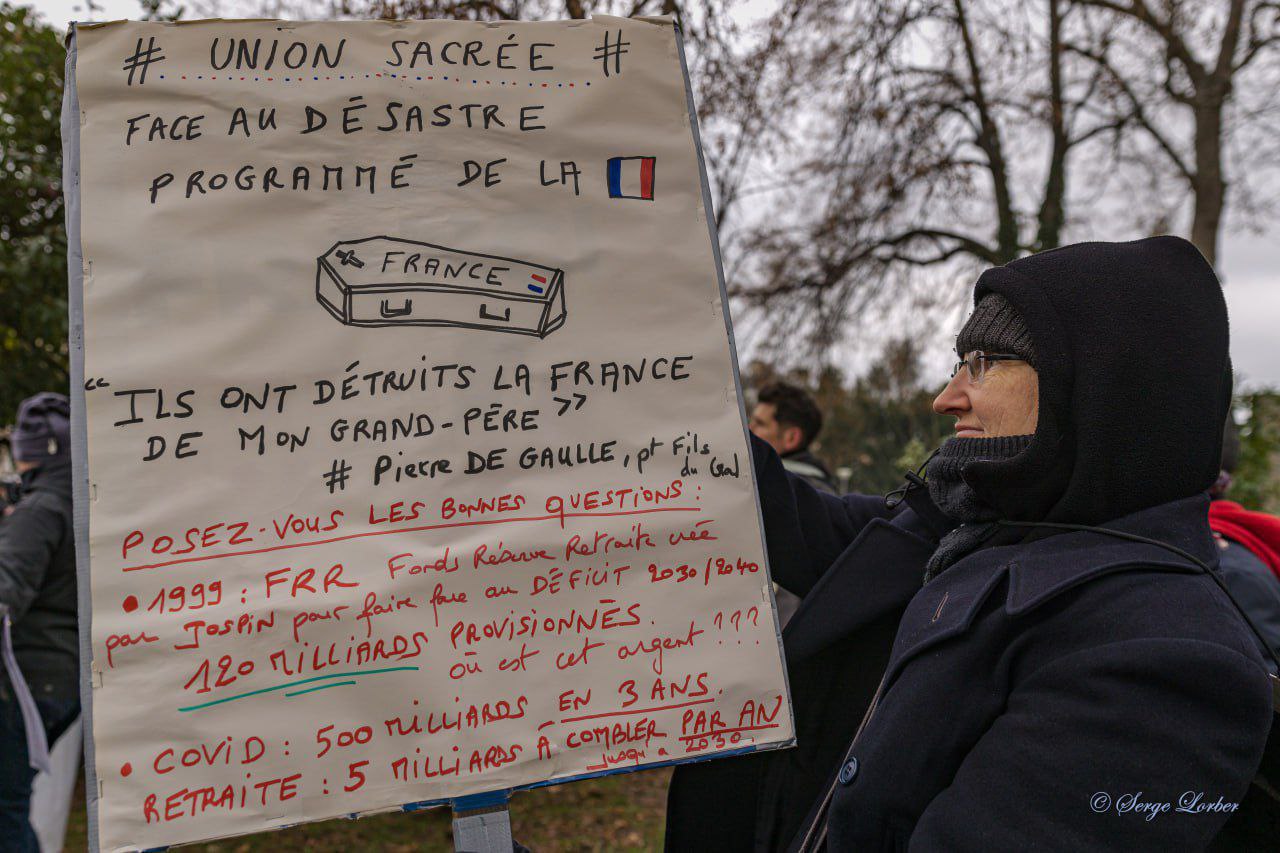 # UNION SACRÉE #
FACE AU DÉSASTRE
PROGRAMMÉ DE LA
FRANCE
“ILS ONT DÉTRUITS LA FRANCE
DE MON GRAND-PÈRE”
# Pierre DE GAULLE, pt Fils
du Gral
POSEZ-VOUS LES BONNES QUESTIONS :
• 1999 : FRR Fonds Réserve Retraite créé
par JOSPIN pour faire face au DÉFICIT 2030/2040
120 MILLIARDS PROVISIONNÉS.
où est cet argent ???
• COVID : 500 MILLIARDS EN 3 ANS.
RETRAITE : 5 MILLIARDS À COMBLER PAR AN
jusqu'à 2030.
© Serge Lorber